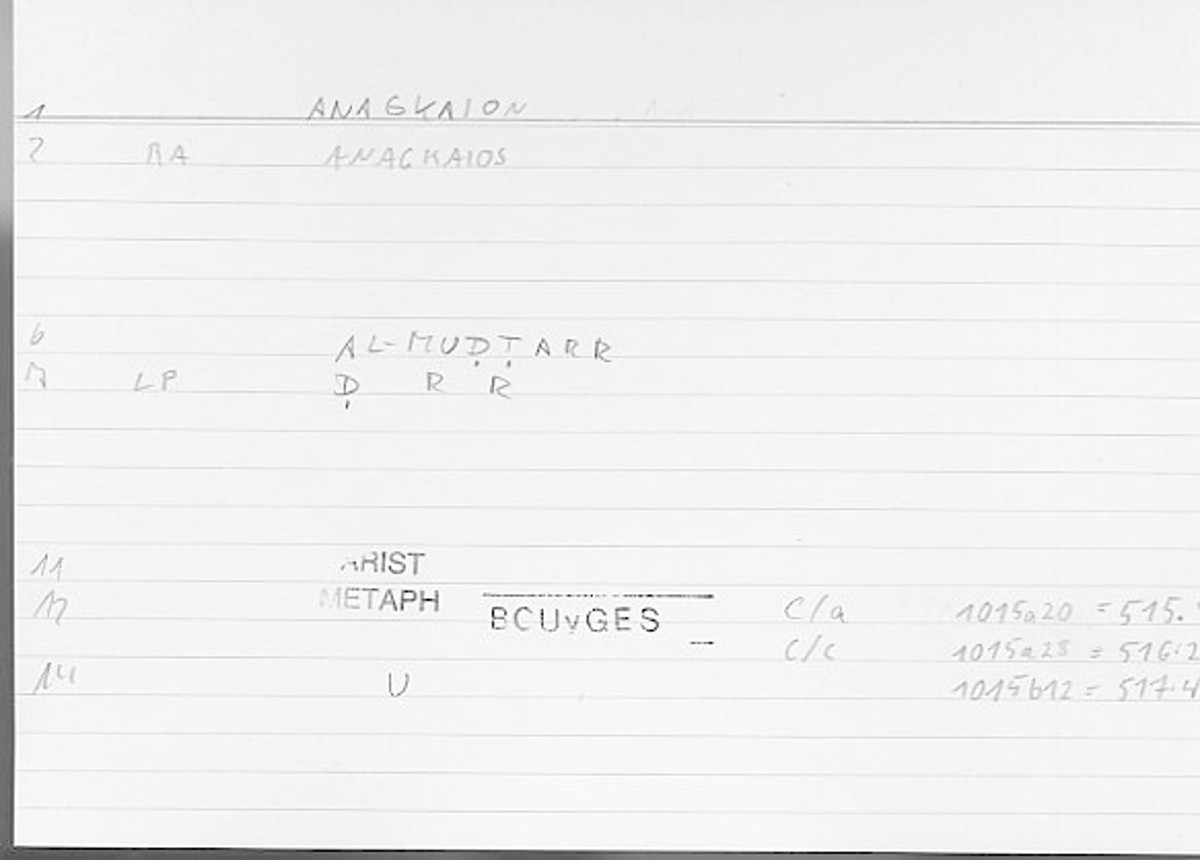 1 ANAGKAION
2 RA ANAGKAIOS
6 AL-MUḌṬARR
LP Ḍ R R
11 ARIST
12 METAPH BCUvGES C/a 1015a20 = 515.
C/c 1015a28 = 516.2
14 U 1015b12 = 517.4